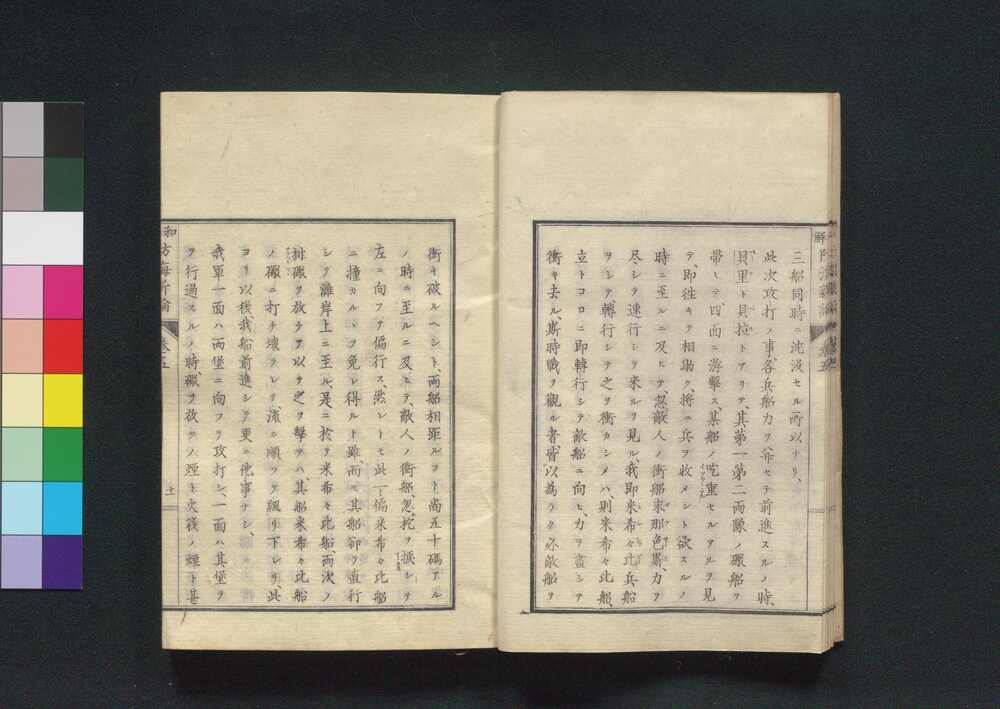 三船同時ニ沈没セル所以ナリ、
此次攻打ノ事各兵船力ヲ并セテ前進スルノ時、
貝里ト貝拉トアリテ、其第一第二両隊ノ礮船ヲ
帶ヒテ、四面ニ游擊ス、某船ノ吃重セルアルヲ見
テ、即往キテ相助ク、將ニ兵ヲ收メント欲スルノ
時ニ至ルニ及ヒテ、忽敵人ノ衝船来那色斯、力ヲ
尽シテ速行シテ来ルヲ見ル、我即米希々比兵船
ヲシテ轉行シテ之ヲ衝カシメハ、則米希々比船、
立トコロニ即轉行シテ敵船ニ向ヒ、力ヲ盡シテ
衝キ去ル、斯時戰ヲ觀ル者皆以為ラク必敵船ヲ
衝キ破ルヘシト、両船相距ルコト尚五十碼アル
ノ時ニ至ルニ及ヒテ、敵人ノ衝船、忽柁ヲ捩シテ
左ニ向フテ偏行ス、然レトモ此一偏米希々比船
ニ撞カルヽヲ免レ得ルト雖、而モ其船卻テ直行
シテ灘岸上ニ至ル、是ニ於テ米希々比船、両次ノ
排礮ヲ放チテ以テ之ヲ擊テハ、其船米希々比船
ノ礮ニ打チ壊ラレテ、流ニ順フテ飄リ下レリ、此
ヨリ以後、我船前進シテ更ニ他事ナシ、
我軍一面ハ両堡ニ向フテ攻打シ、一面ハ其堡ヲ
ヲ行過スルノ時、礮ヲ放ツノ烟ト火筏ノ煙ト甚